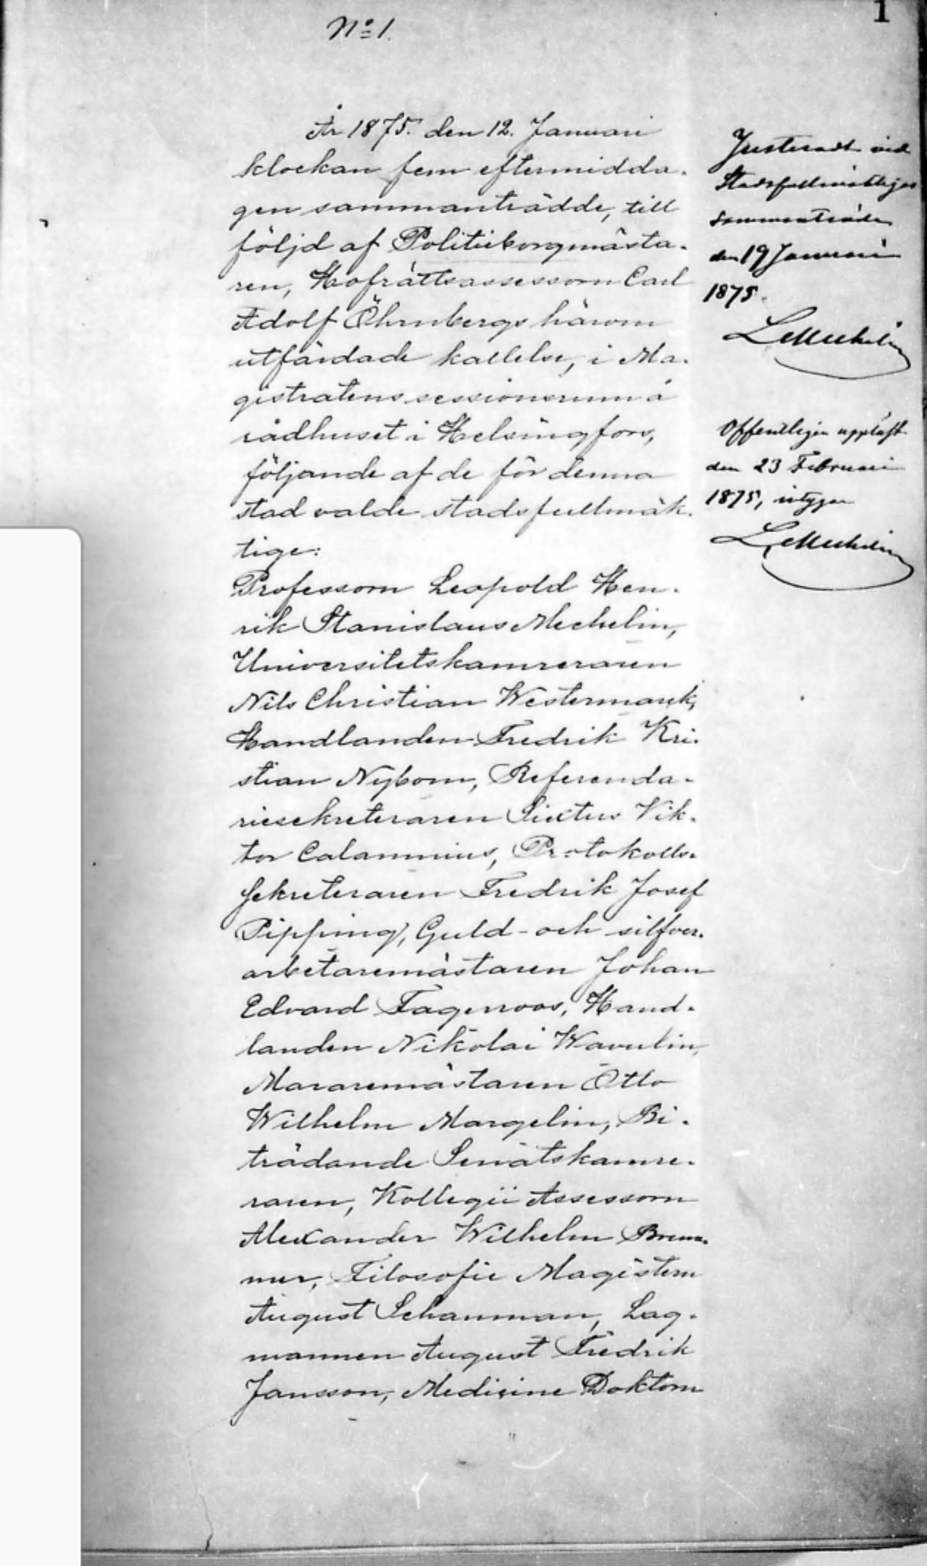 1
N:o 1.
År 1875. den 12. Januari
klockan fem eftermidda-
gen sammanträdde, till
följd af Politieborgmästa-
ren, Hofrättsassessorn Carl
Adolf Öhrnbergs härom
utfärdade kallelse, i Ma-
gistratens sessionsrum å
rådhuset i Helsingfors,
följande af de för denna
stad valde stadsfullmäk-
tige:
Professorn Leopold Hen-
rik Stanislaus Mechelin,
Universitetskamreraren
Nils Christian Westermarck,
Handlanden Fredrik Kri-
stian Nybom, Referenda-
riesekreteraren Sixtus Vik-
tor Calamnius, Protokolls-
sekreteraren Fredrik Josef
Pipping, Guld- och silfver-
arbetaremästaren Johan
Edvard Fagerroos, Hand-
landen Nikolai Wavulin,
Mararemästaren Otto
Wilhelm Margelin, Bi-
trädande Senatskamre-
raren, Kollegii Assessorn
Alexander Wilhelm
Filosofie Magistern
August Schauman, Lag-
mannen August Fredrik
Jansson, Medicine Doktorn
Justeradt vid
Stadsfullmäktiges
sammanträde
den 19 Januari
1875.
L Mechelin
Offentligen uppläst
den 23 Februari
1875, intygar
L Mechelin